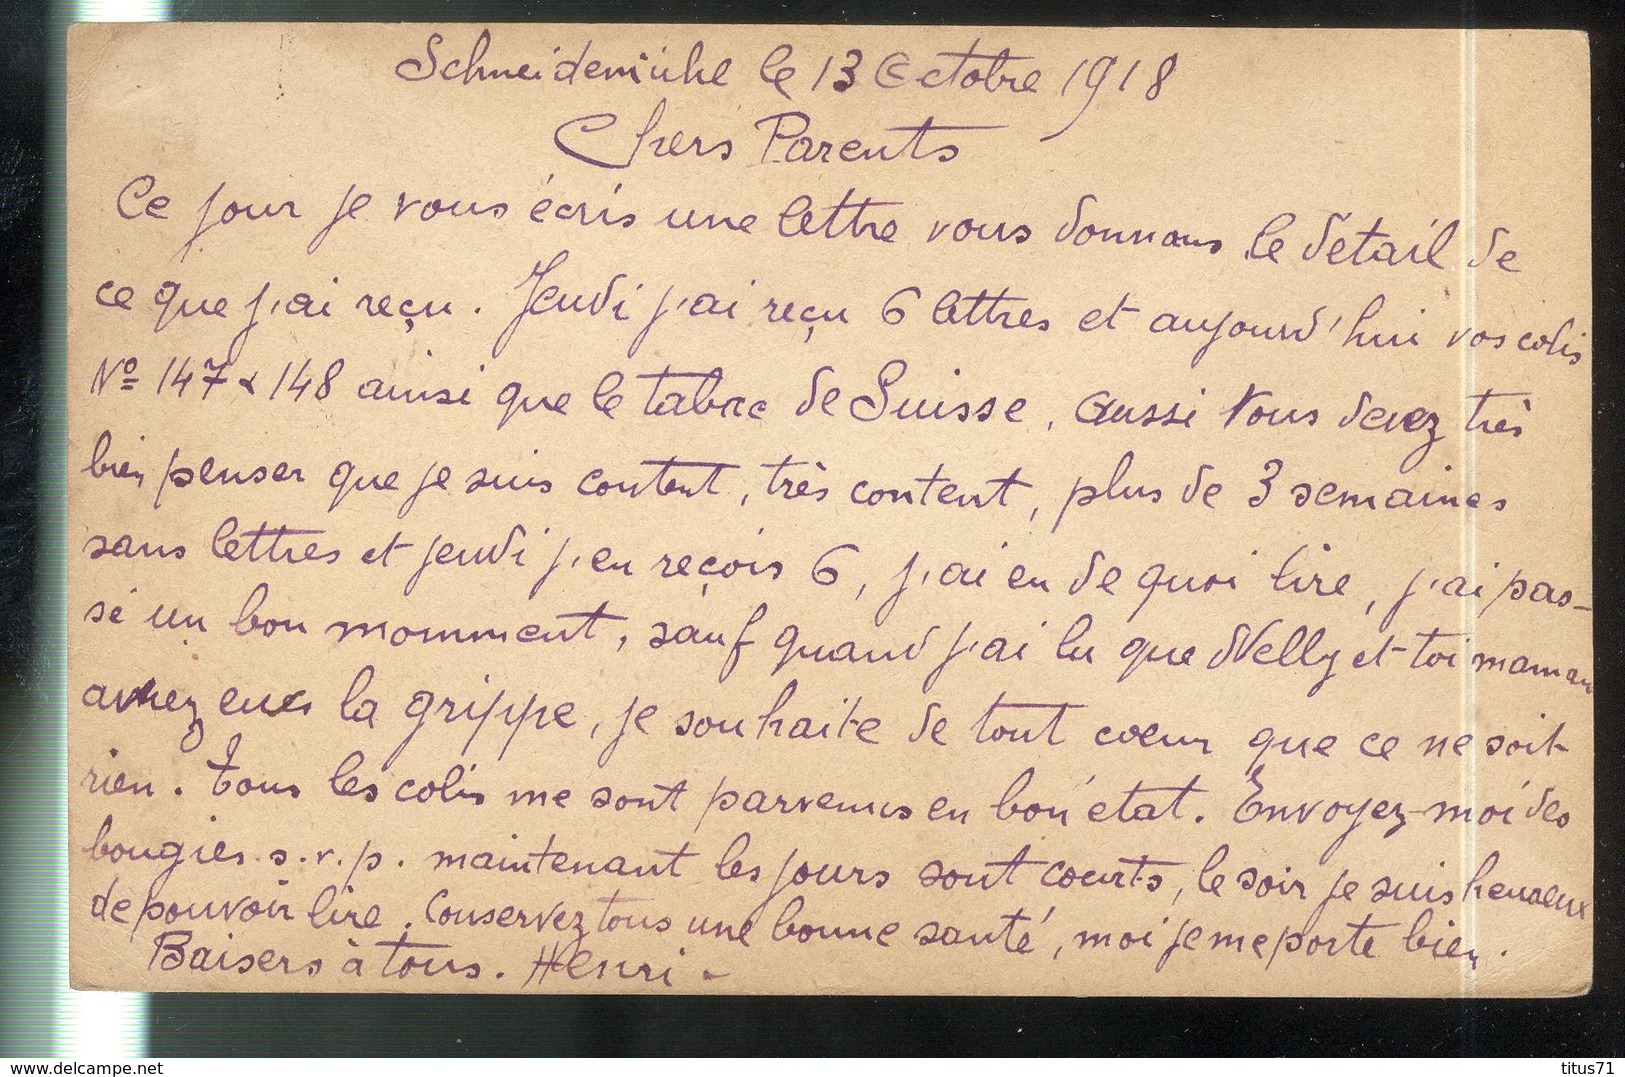 Schneidemühe le 13 Octobre 1918
Chers Parents
Ce jour je vous écris une lettre vous donnans le détail de
ce que j'ai reçu. Jeudi j'ai reçu 6 lettres et aujourd'hui vos colis
Nº 147 & 148 ainsi que le tabac de Suisse, aussi vous devez très
bien penser que je suis content, très content, plus de 3 semaines
sans lettres et jeudi j'en reçois 6, j'ai eu de quoi lire, j'ai pas-
sé un bon momment, sauf quand j'ai lu que Nelly et toi maman
aviez eues la grippe, je souhaite de tout cœur que ce ne soit
rien. Tous les colis me sont parvenus en bon état. Envoyez-moi des
bougies s.v.p. maintenant les jours sont courts, le soir je suis heureux
de pouvoir lire. Conservez tous une bonne santé, moi je me porte bien.
Baisers à tous. Henri -
www.delcampe.net
titus71